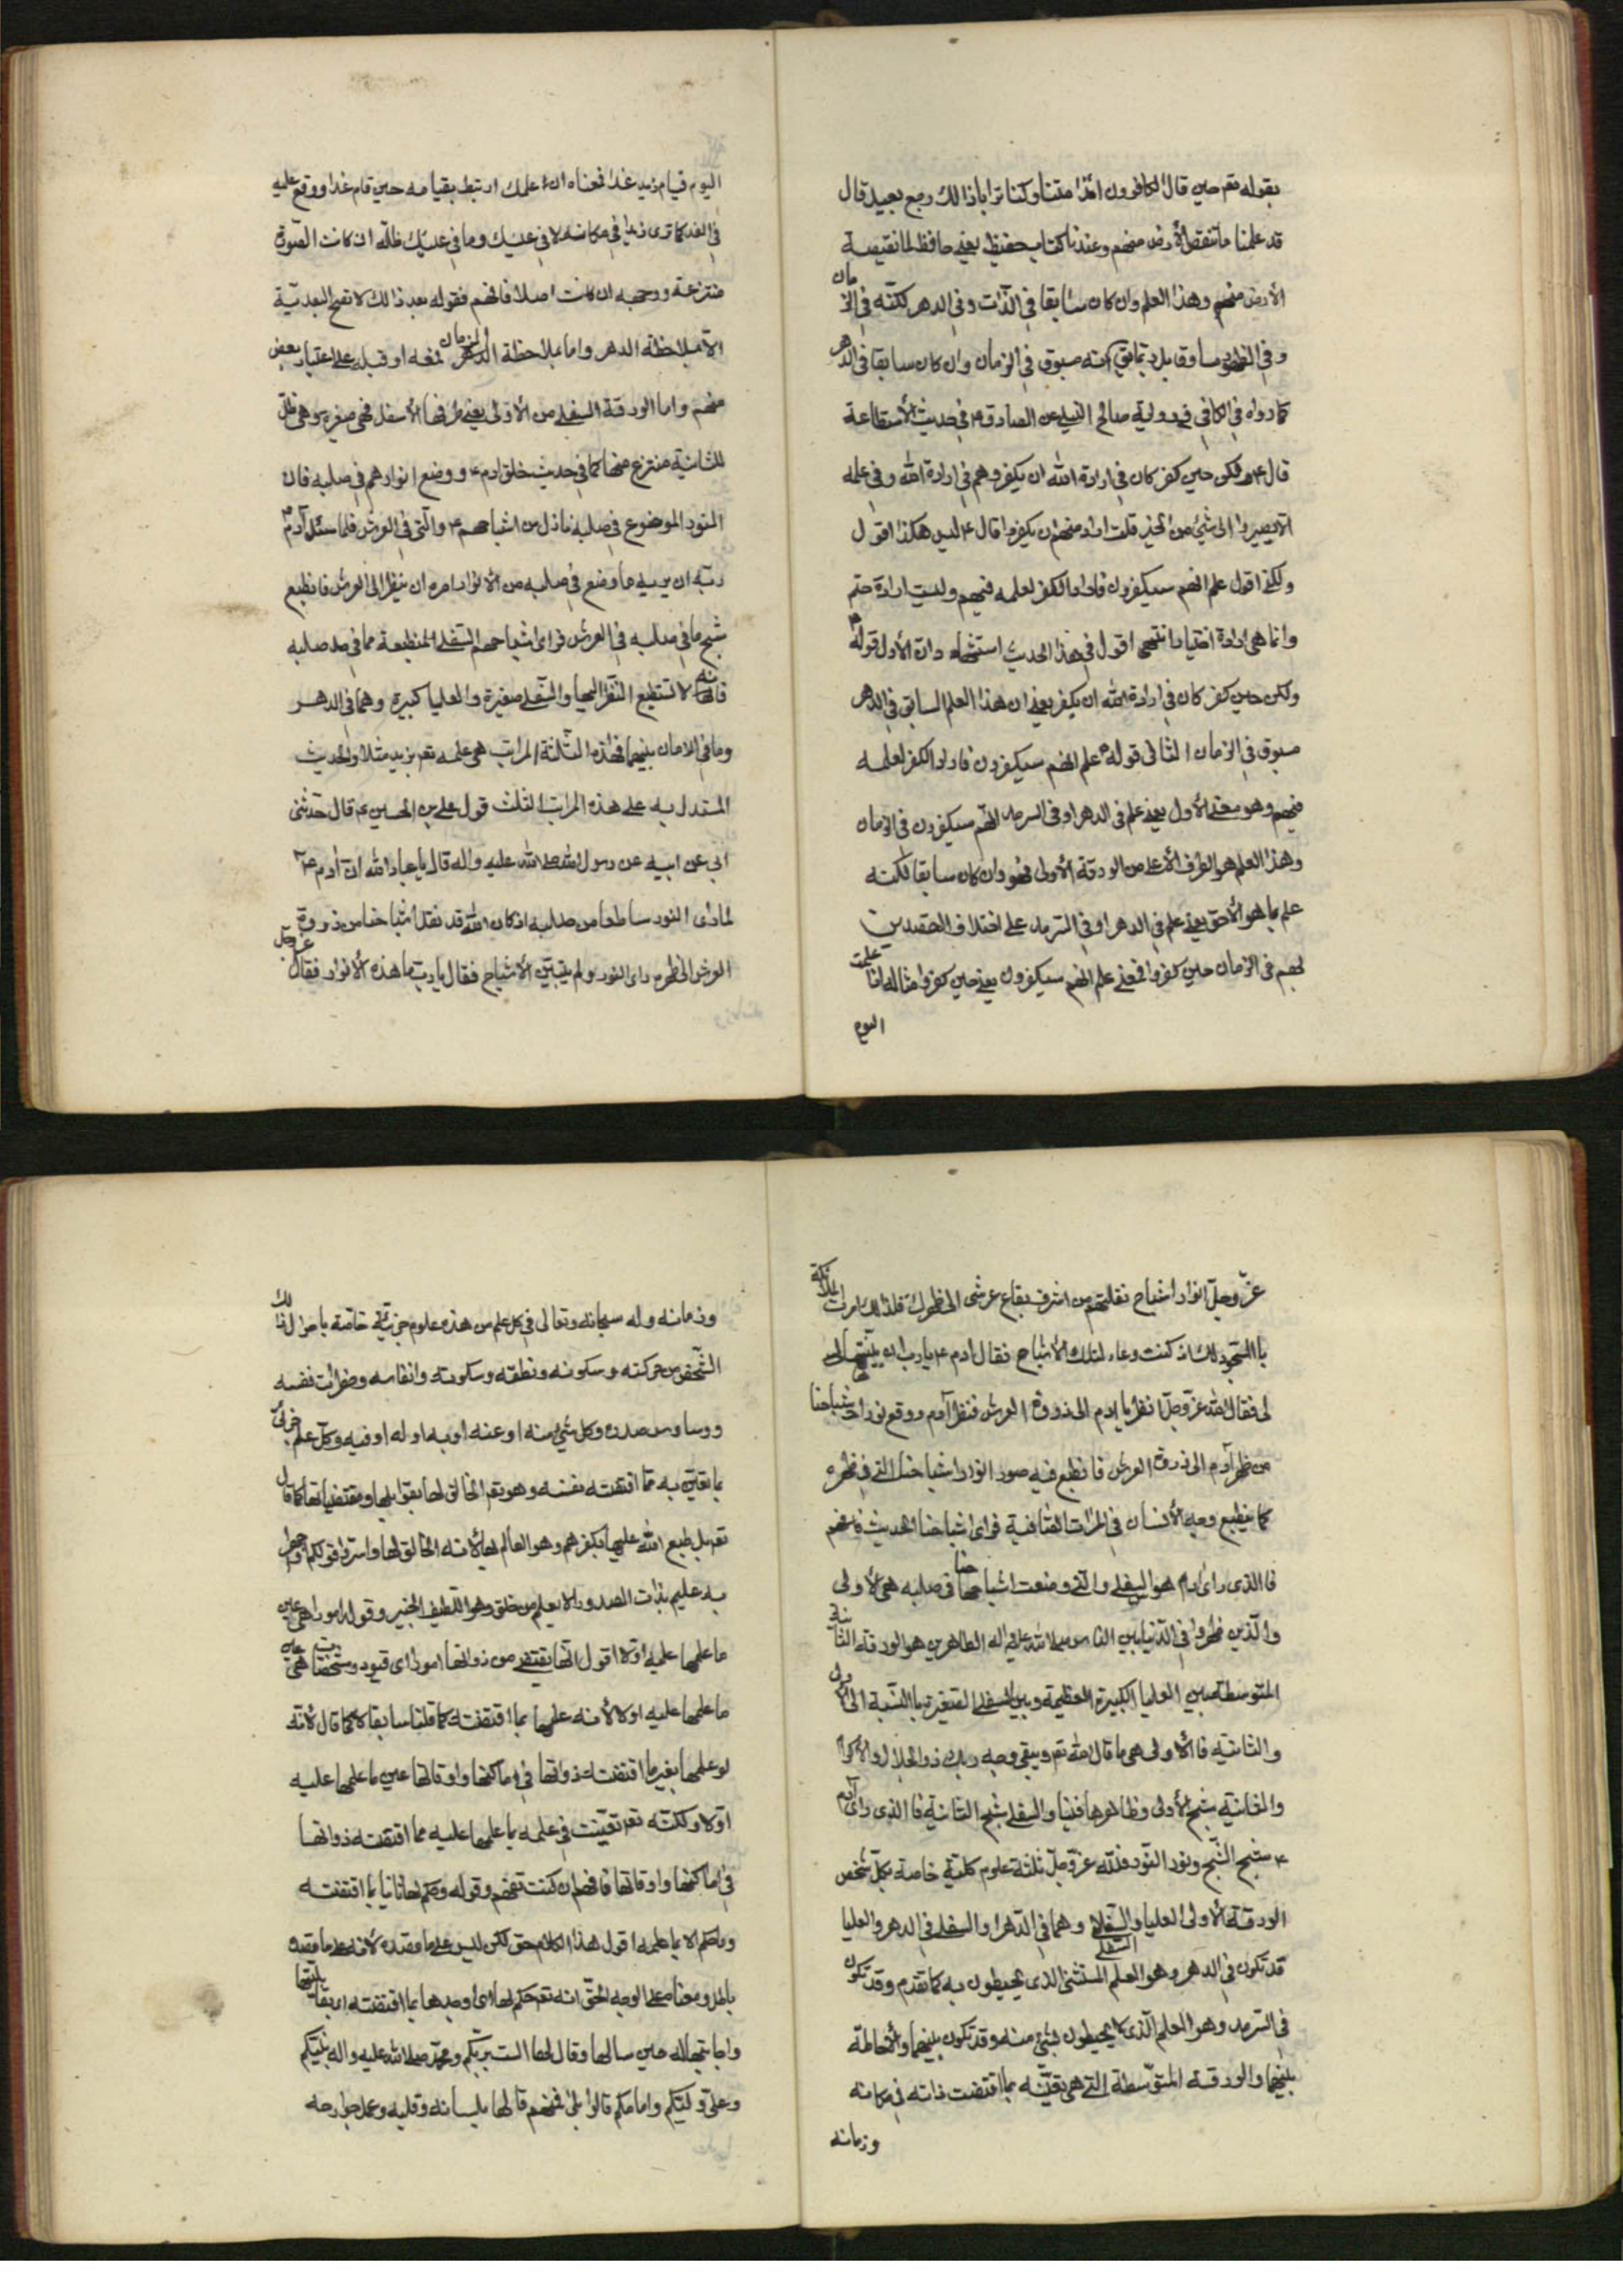 بقوله تعم حين قال الكافرون ائذا متنا وكنا ترابا ذالك رجع بعيد قال
قد علمنا ما تنقص الأرض منهم وعندنا كتاب حفيظ يعني حافظ لما تنقصه
الأرض منهم وهذا العلم وان كان سابقا في الذات وفي الدهر لكنّه في الزمان
وفي الظهور مساوق بل وتمايق انه مسبوق في الزمان وان كان سابقا في الدهر
كما رواه في الكافي في رواية صالح النيلي عن الصادق ع في حديث الأستطاعة
قال ع ولكن حين كفر كان في ارادة الله ان يكفر وهم في ارادة الله وفي علمه
الّا يصيروا الى شيئ من الخير قلت اراد منهم ان يكفروا قال ع ليس هكذا اقول
ولكني اقول علم انهم سيكفرون فاراد الكفر لعلمه فيهم وليست ارادة حتم
وانما هي ارادة اختيار انتهى اقول في هذا الحديث استشهاد ان الأول قوله ع
ولكن حين كفر كان في ارادة الله ان يكفر يعني ان هذا العلم السابق في الدهر
مسبوق في الزمان الثاني قوله ع علم انهم سيكفرون فاراد الكفر لعلمه
فيهم وهو معنى الأول يعني علم في الدهر او في السرمد انهم سيكفرون في الزمان
وهذا العلم هو الطرف الأعلى من الورقة الأولى فهو وان كان سابقا لكنه
علم بما هو لأحق يعني علم في الدهر او في السرمد على اختلاف القصدين
لهم في الزمان حين كفروا فمعنى علم انهم سيكفرون يعني حين كفروا مثاله اذا علمت
اليوم
اليوم قيام زيد غدا فمعناه ان علمك ارتبط بقيامه حين قام غدا ووقع عليه
في الغد كما ترى زيدا في مكانه لا في عينيك وما في عينيك ظلّه ان كانت الصورة
منتزعة ووجهه ان كانت اصلا فافهم فقوله بعد ذالك لا تصح البعديّة
الّا بملاحظة الدهر واما بملاحظة الدهر الزمان فمعه او قبله على اعتبار بعض
منهم واما الورقة السفلى من الأولى يعني طرفها الأسفل فهي صغيرة وهي ظل
للثانية منتزع منها كما في حديث خلق ادم ع ووضع انوارهم في صلبه فان
النور الموضوع في صلبه نازل من اشباحهم ع والّتي في العرش فلما سئل آدم ع
ربّه ان يريه ما وضع في صلبه من الأنوار امره ان ينظر الى العرش فانطبع
شبح ما في صلبه في العرش فراى اشباحهم السّفلى المنطبعة مما في صلبه
فانه لا تستطيع النّظر اليها والسّفلى صغيرة والعليا كبيرة وهما في الدهر
وما في الزمان بينهما فهذه الثّلثة المراتب هي علمه تعم بزيد مثلا والحديث
المستدل به على هذه المراتب الثلث قول علي بن الحسين ع قال حدّثني
ابي عن ابيه عن رسول الله صلى الله عليه واله قال يا عباد الله ان آدم ع
لما رأى النور ساطعا من صلبه اذ كان الله قد نقل اشباحنا من ذروة
العرش الى ظهره راى النور ولم يتبيّن الأشباح فقال يا رب ما هذه الأنوار فقال عز وجل
عزّ وجلّ انوار اشباح نقلتهم من اشرف بقاع عرشي الى ظهرك فلذالك امرت الملائكة
بالسّجود لك اذ كنت وعاء لتلك الأشباح فقال ادم ع يا رب لو بيّنتها
لى فقال الله عزّ وجلّ انظر يا ادم الى ذروة العرش فنظر آدم ووقع نور اشباحنا
من ظهر آدم الى ذروة العرش فانطبع فيه صور انوار اشباحنا التي في ظهره
كما ينطبع وجه الأنسان في المرات الصّافية فراى اشباحنا الحديث فافهم
فالذي راى ادم هو السفلى والتي وضعت اشباحها في صلبه هي الأولى
والّذين ظهروا في الدّنيا بين الناس صلى الله عليه واله الطاهرين هو الورقة الثانية
المتوسطة بين العليا الكبيرة العظيمة وبين السفلى الصّغيرة بالنّسبة الى الأولى
والثانية فالأولى هي ما قال الله تعم ويبقى وجه ربك ذو الجلال والأكرام
والثانية شبح الأولى وظاهرها فينا والسفلى شبح الثانية فالذي راى آدم
ع شبح الشّبح ونور النّور فللّه عزّ وجلّ ثلثة علوم كلّية خاصة بكلّ شخص
الورقة الأولى العليا والسّفلى وهما في الدّهر او السفلى في الدهر والعليا
قد تكون في الدهر وهو العلم المستثنى الذي يحيطون به كما تقدم وقد تكون
في السّرمد وهو العلم الّذي لا يحيطون بشيئ منه وقد تكون بينهما والأحاطة
بينهما والورقة المتوّسطة التي هي تعيّنه بما اقتضت ذاته في مكانه
وزمانه
وزمانه وله سبحانه وتعالى في كل علم من هذه علوم جزئيّة خاصّة باحوال ذالك
الشّخص من حركته وسكونه ونطقه وسكوته وانفاسه وخطرات نفسه
ووساوس صدره وكل شيئ منه او عنه او به او له او فيه وكل علم جزئي
بما تعيّن به مما اقتضته نفسه وهو تعم الخالق لها بقوابلها ومقتضياتها كما قال
تعم بل طبع الله عليها بكفرهم وهو العالم لها لأنه الخالق لها واسرّوا قولكم او اجهروا
به انه عليم بذات الصدور الا يعلم من خلق وهو اللطيف الخبير وقوله امورا هي عين
ما علمها عليه اولا اقول انها يقتضي من ذواتها امورا اى قيود ومشخصات هي عين
ما علمها عليه اولا لأنه علمها بما اقتضت كما قلنا سابقا لا كما قال لأنه
لو علمها بغير ما اقتضته ذواتها في اماكنها واوقاتها عين ما علمها عليه
اوّلا ولكنّه تعم تعيّنت في علمه بما علمها عليه مما اقتضته ذواتها
في اماكنها واوقاتها فافهم ان كنت تفهم وقوله وحكم لها ثانيا بما اقتضته
وما حكم الا بما علمه اقول هذا الكلام حق لكن ليس على ما قصده لأنه على ما قصده
باطل ومعناه على الوجه الحق انه تعم حكم لها اى اوجدها بما اقتضته بقابليتها
واجابتها له حين سالها وقال لها الست بربّكم ومحمّد صلى الله عليه واله نبيّكم
وعلي وليّكم وامامكم قالوا بلى فمنهم قالها بلسانه وقلبه وعمل جوارحه